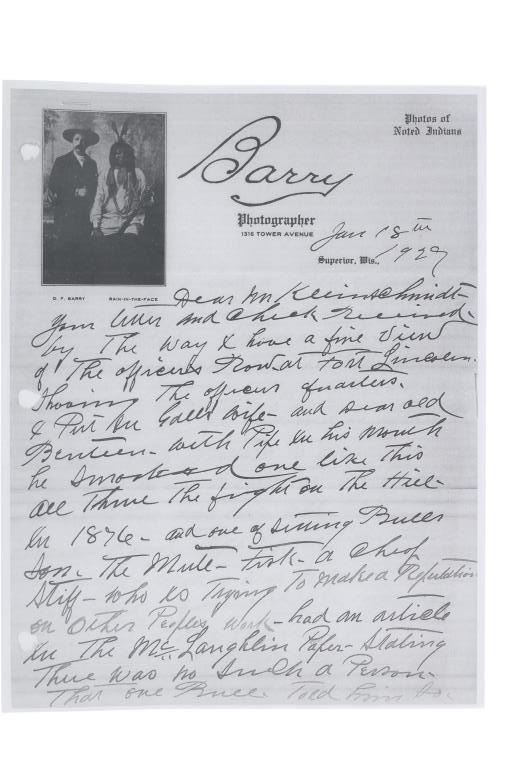 Photos of
Noted Indians
Barry
Photographer
1316 TOWER AVENUE
Superior, Wis.,
Jan 18th
1929
D. F. BARRY RAIN-IN-THE-FACE
Dear Mr Kleinschmidt-
Your letter and Check Received.
by The way I have a fine View
of The officers Row at Fort Lincoln.
Showing The officers quarters.
I Put in Galls wife- and dear old
Benteen- with Pipe in his mouth
he smoked one like this
all Thrue The fight on The Hill-
in 1876- and one of Sitting Bulls
Son. The Mute- Fisk- a cheap
Stiff- who is Trying To make a Reputation
on other Peoples work- had an article
in The McLaughlin Paper- Stating
There was no Such a Person-
That one Bull Told him so.